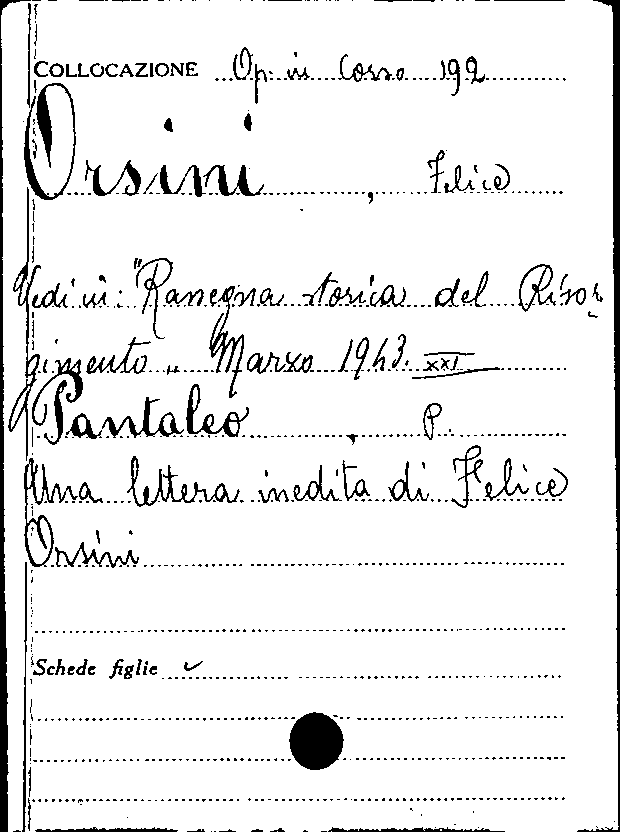 COLLOCAZIONE Op. in Corso 192
Orsini, Felice
Vedi in: "Rassegna storica del Risor-
gimento" Marzo 1943. XXI
Pantaleo, P.
Una lettera inedita di Felice
Orsini
Schede figlie ✓